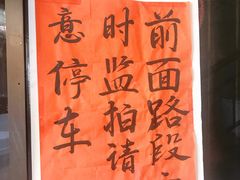 前面路段
时监拍请
意停车